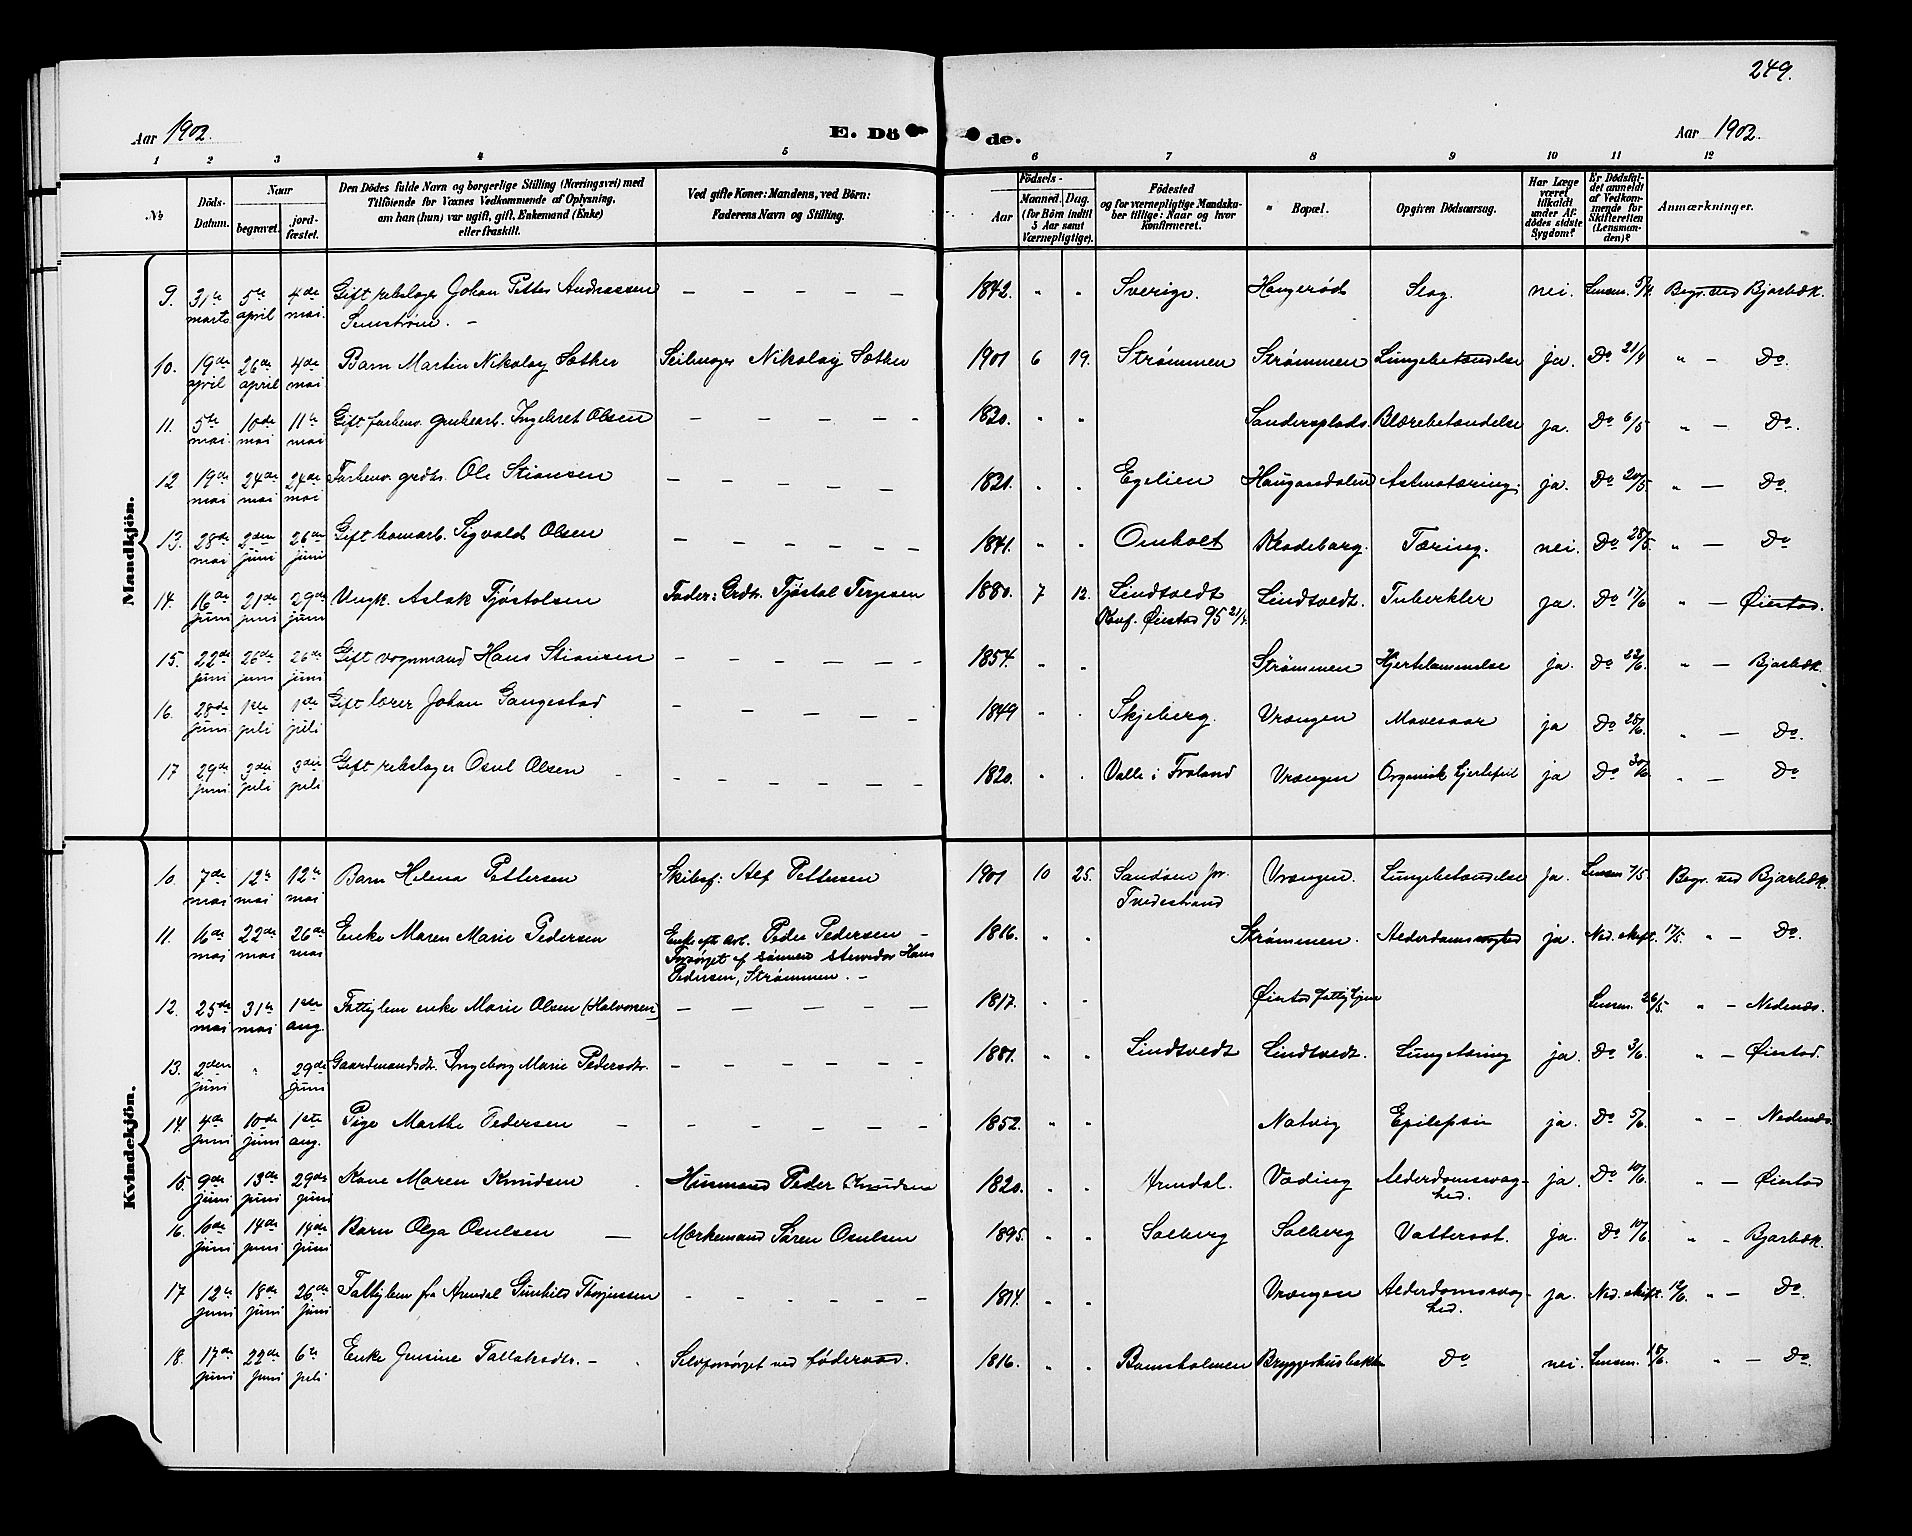 249.
Aar 1902. E. Dö de. Aar 1902.
1 2 3 4 5 6 7 8 9 10 11 12
№ Döds-Datum. Naar begravet. jordfæstet. Den Dödes fulde Navn og borgerlige Stilling (Næringsvei) med Tilföiende for Voxnes Vedkommende af Oplysning, om han (hun) var ugift, gift, Enkemand (Enke) eller fraskilt. Ved gifte Koner: Mandens, ved Börn: Faderens Navn og Stilling. Födsels- Aar Maaned. Dag. (for Börn indtil 5 Aar samt Værnepligtige). Födested og for værnepligtige Mandskaber tillige: Naar og hvor konfirmeret. Bopæl. Opgiven Dödsaarsag. Har Læge været tilkaldt under Afdödes sidste Sygdom? Er Dödsfaldet anmeldt af Vedkommende for Skifteretten (Lensmanden)? Anmærkninger.
Mandkjön.
9. 31te marts 5te april 4de mai. Gift rebslager Johan Petter Andreassen – – – – – 1842. " " Sverige. Slag. nei. Lensm. 5/4. Begr. ved Bjorbæk.
10. 19de april 26de april 4de mai Barn Martin Nikolay Sæther Nikolay Sæther 1901 6 19. Strømmen Strømmen Lungebetændelse ja. Do 21/4 " – Do.
11. 5te mai. 10de mai 11te mai Gift Ingebret Olsen – – – – – 1820. " " Sandersplads. Blærebetændelse ja. Do 6/5 " – Do.
12 19de mai 24de mai 24de mai Ole Stiansen – – – – – 1821. " " Egelien Haugaasdalen Astmatæring. ja. Do 20/5 " – Do.
13. 28de mai 2den juni 26de juni Gift Sigvald Olsen – – – – – – 1841. " " Omholt Klodeborg. Tæring. nei. Do 28/5. " – Do
14. 16de juni 21de juni 29de juni Ungk. Aslak Tjøstolsen Fader: Grdbr. Tjøstol Terjesen 1880. 7 12. Lindtvedt
Konf. Øiestad 95 21/4. Lindtvedt. Tuberkler ja. Do 17/6 " – Øiestad.
15. 22de juni 26de juni 26de juni Gift vognmand Hans Stiansen – – – – – – 1854. " " Strømmen Hjertelammelse ja. Do 23/6. " – Bjorbæk.
16. 28de juni 1ste juli 1ste juli Gift lærer Johan Gangestad – – – – 1849 " " Skjeberg. Vrængen Mavesaar ja Do " – Do.
17 29de juni 3die juli 3die juli Gift rebslager Osul Olsen – – – – – – 1820. " " Valle i Froland Vrængen Organisk hjertefeil ja Do 30/6. " – Do
Kvindekjön.
10. 7de mai 12te mai 12te mai Barn Helena Pettersen Skibsf: Alf Pettersen 1901 10 25. Sandøen pr.
Tvedestrand Vrængen. Lungebetændelse ja. Lensm 7/5 Begr. ved Bjorbæk.
11. 16de mai 22de mai 26de mai Enke Maren Marie Pedersen Enke efter arb. Peder Pedersen –
Forsørget af sønnen stuvedor Hans
Pedersen, Strømmen. – 1816. " " Strømmen. Alderdomssvaghed ja. Ned. skift. 17/5 " – Do.
12. 25de mai 31te mai 1ste aug. Fattiglem enke Marie Olsen (Halvorsen) – – – – – 1817. " " Øiestad fattighjem Lensm. 26/5. " – Nedenæs.
13. 2den juni " 29de juni Gaardmandsdtr. Ingeborg Marie Pedersdtr. – – – – – – 1881. " " Lindtvedt Lindtvedt. Lungetæring ja. Do 3/6. " – Øiestad.
14. 4de juni 10de juni 1ste aug. Pige Marthe Pedersen – – – – – – 1852. " " Natvig Epilepsie ja. Do 5/6. " – Nedenæs.
15. 9de juni 13de juni 29de juni Kone Maren Knudsen Husmand Peder Knudsen 1820. " " Arendal. Vading Alderdomssvaghed. ja. Do 10/6. " – Øiestad
16. 6de juni 14de juni 14de juni Barn Olga Osulsen – Mærkemand Søren Osulsen 1895. " " Solberg Solberg Vattersot. ja. Do 10/6 " – Bjorbæk.
17 12te juni 18de juni 26de juni Fattiglem fra Arendal Gunhild Thorjussen – – – – – – 1814. " " Vrængen Alderdomssvaghed. ja. Ned. skift. 12/6. " – Do.
18. 17de juni 22de juni 6te juli Enke Jensine Tallaksdtr. – Selvforsørget ved føderaad. 1816. " " Bomsholmen Bryggerhusbakken Do nei. Lensm. 18/6. " – Do.